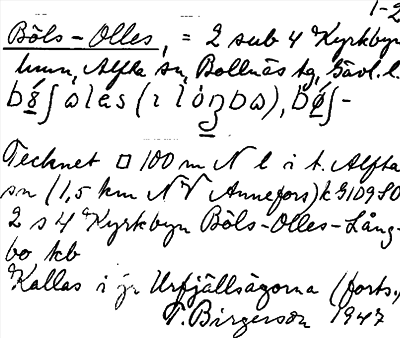 1-2
Böls-Olles, = 2 sub 4 Kyrkbyn
hmn, Alfta sn, Bollnäs tg, Gävl. l.
Tecknet □ 100 m N l i t. Alfta
sn (1,5 km NV Annefors) k G1D9SO
2 s 4 Kyrkbyn Böls-Olles-Lång-
bo kb
Kallas i jr Urfjällsägorna (forts.,
T. Birgerson 1947